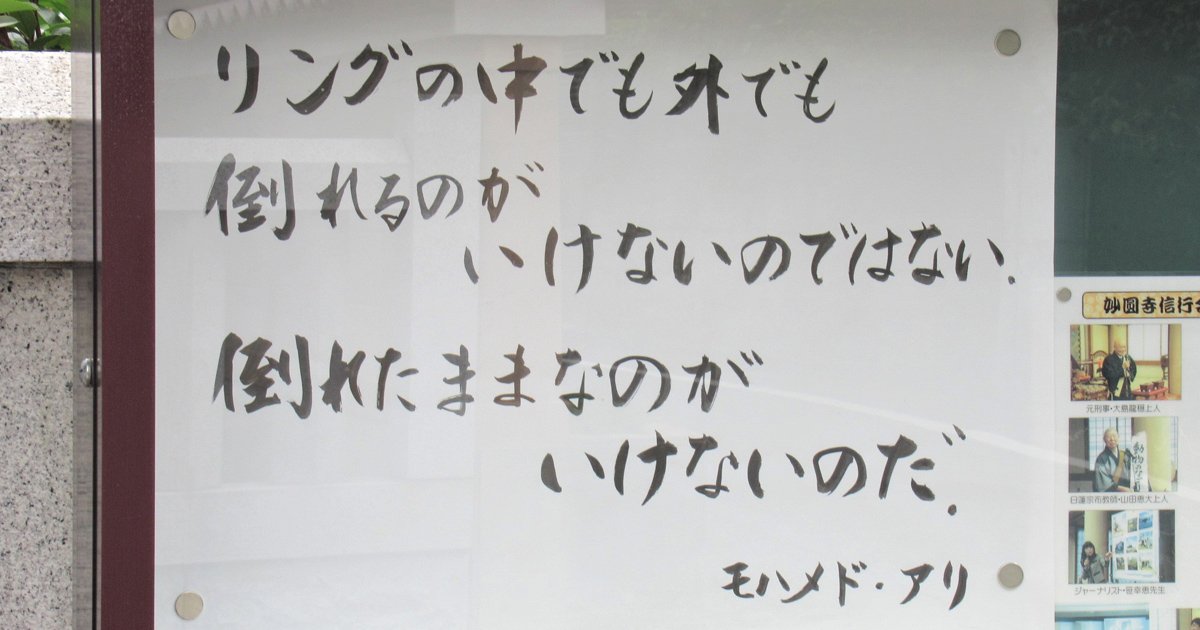 リングの中でも外でも
倒れるのが
いけないのではない.
倒れたままなのが
いけないのだ.
モハメド・アリ
妙圓寺信行会
元刑事・大島龍穏上人
日蓮宗布教師・山田恵大上人
ジャーナリスト・笹幸恵先生